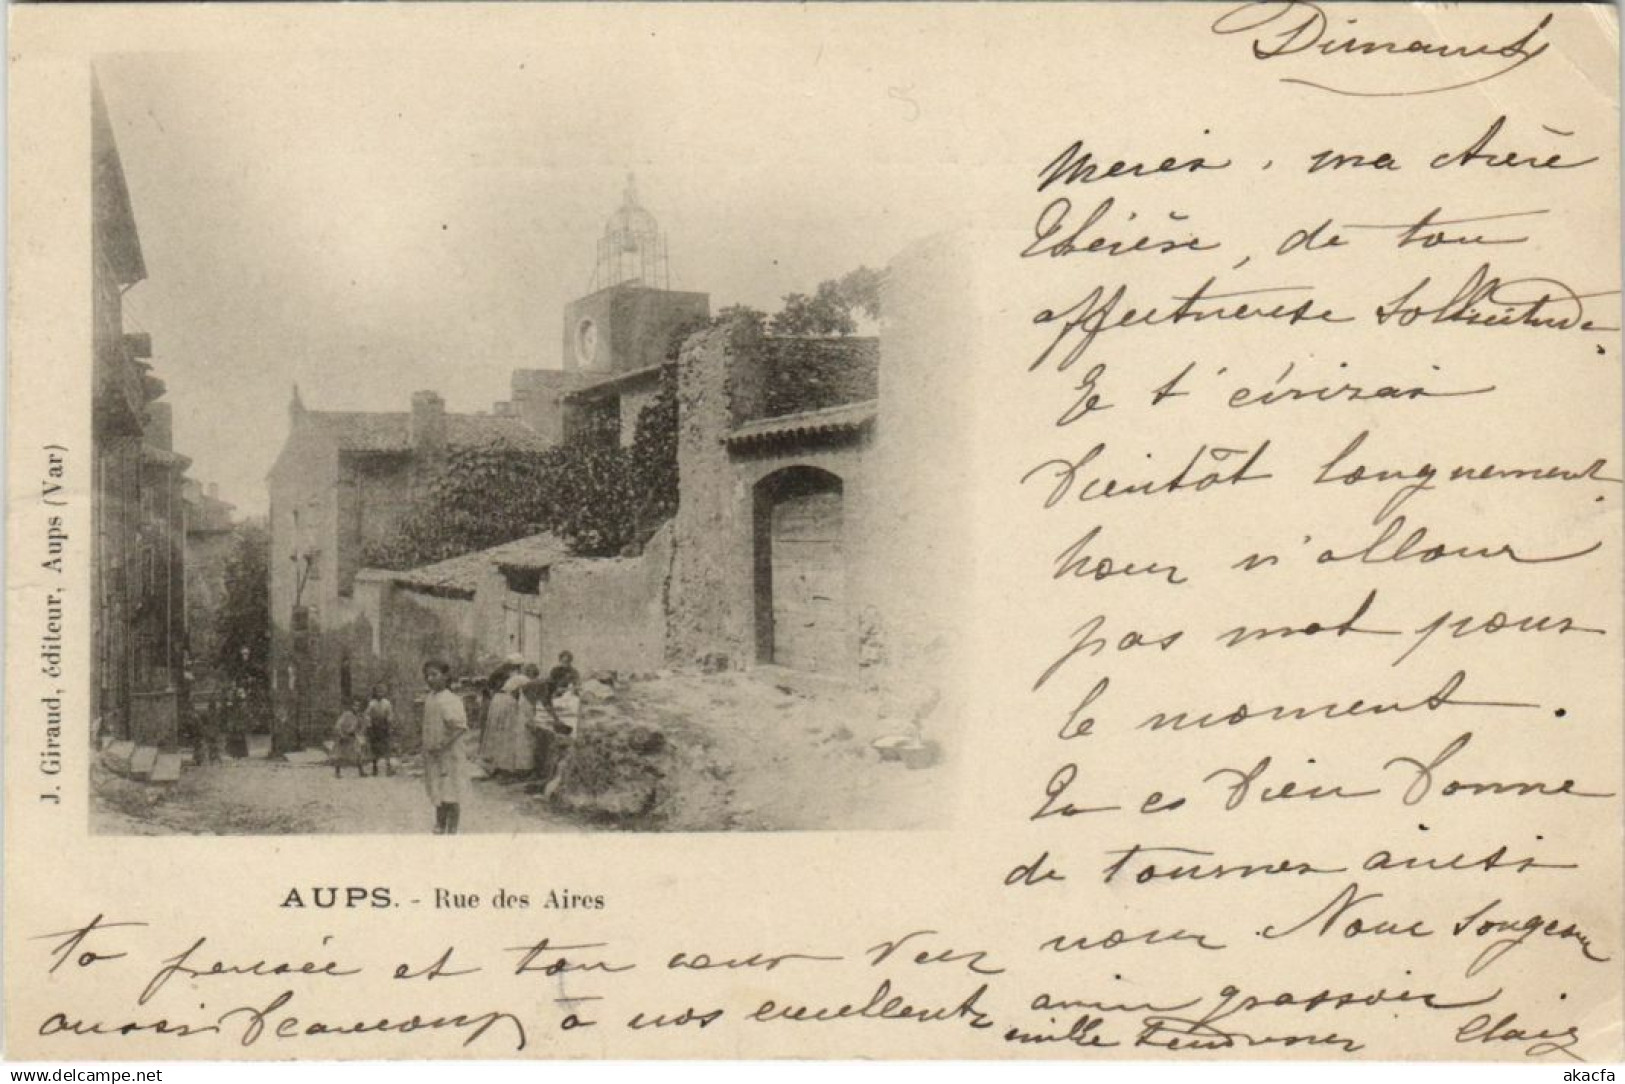 Dimanche
Merci, ma chère
Thérèse, de ton
affectueuse sollicitude.
Je t'écrirai
bientôt longuement.
Nous n'allons
pas mal pour
le moment.
Tu es bien bonne
de tourner ainsi
ta pensée et ton cœur vers nous. Nous songeons
aussi beaucoup à nos excellents amis grassois
mille tendresses Claire
AUPS. - Rue des Aires
J. Giraud, éditeur, Aups (Var)
akacfa